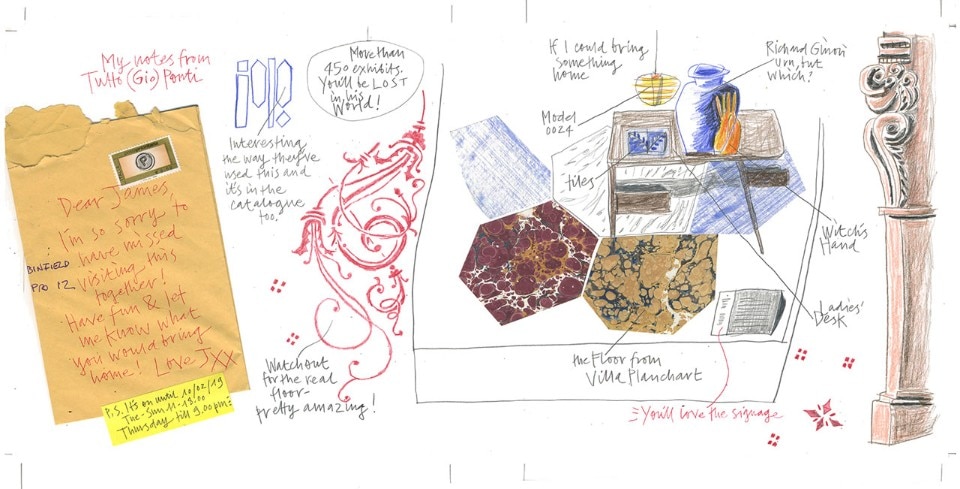 My notes from
Tutto (Gio) Ponti
P
Dear James,
I'm so sorry to
have missed
visiting this
together!
Have fun & let
me know what
you would bring
home! Love Jxx
BINFIELD
PRO 12
P.S. It's on until 10/02/19
Tue-Sun 11-18.00
Thursday till 9.00pm!
Interesting
the way they've
used this and
it's in the
catalogue
too.
More than
450 exhibits.
You'll be LOST
in his
World!
Watch out
for the real
floor-
pretty amazing!
If I could bring
something
home
Model
0024
tiles
Richard Ginori
Urn, but
which?
Witch's
Hand
Ladies'
Desk
the Floor from
Villa Planchart
You'll love the signage